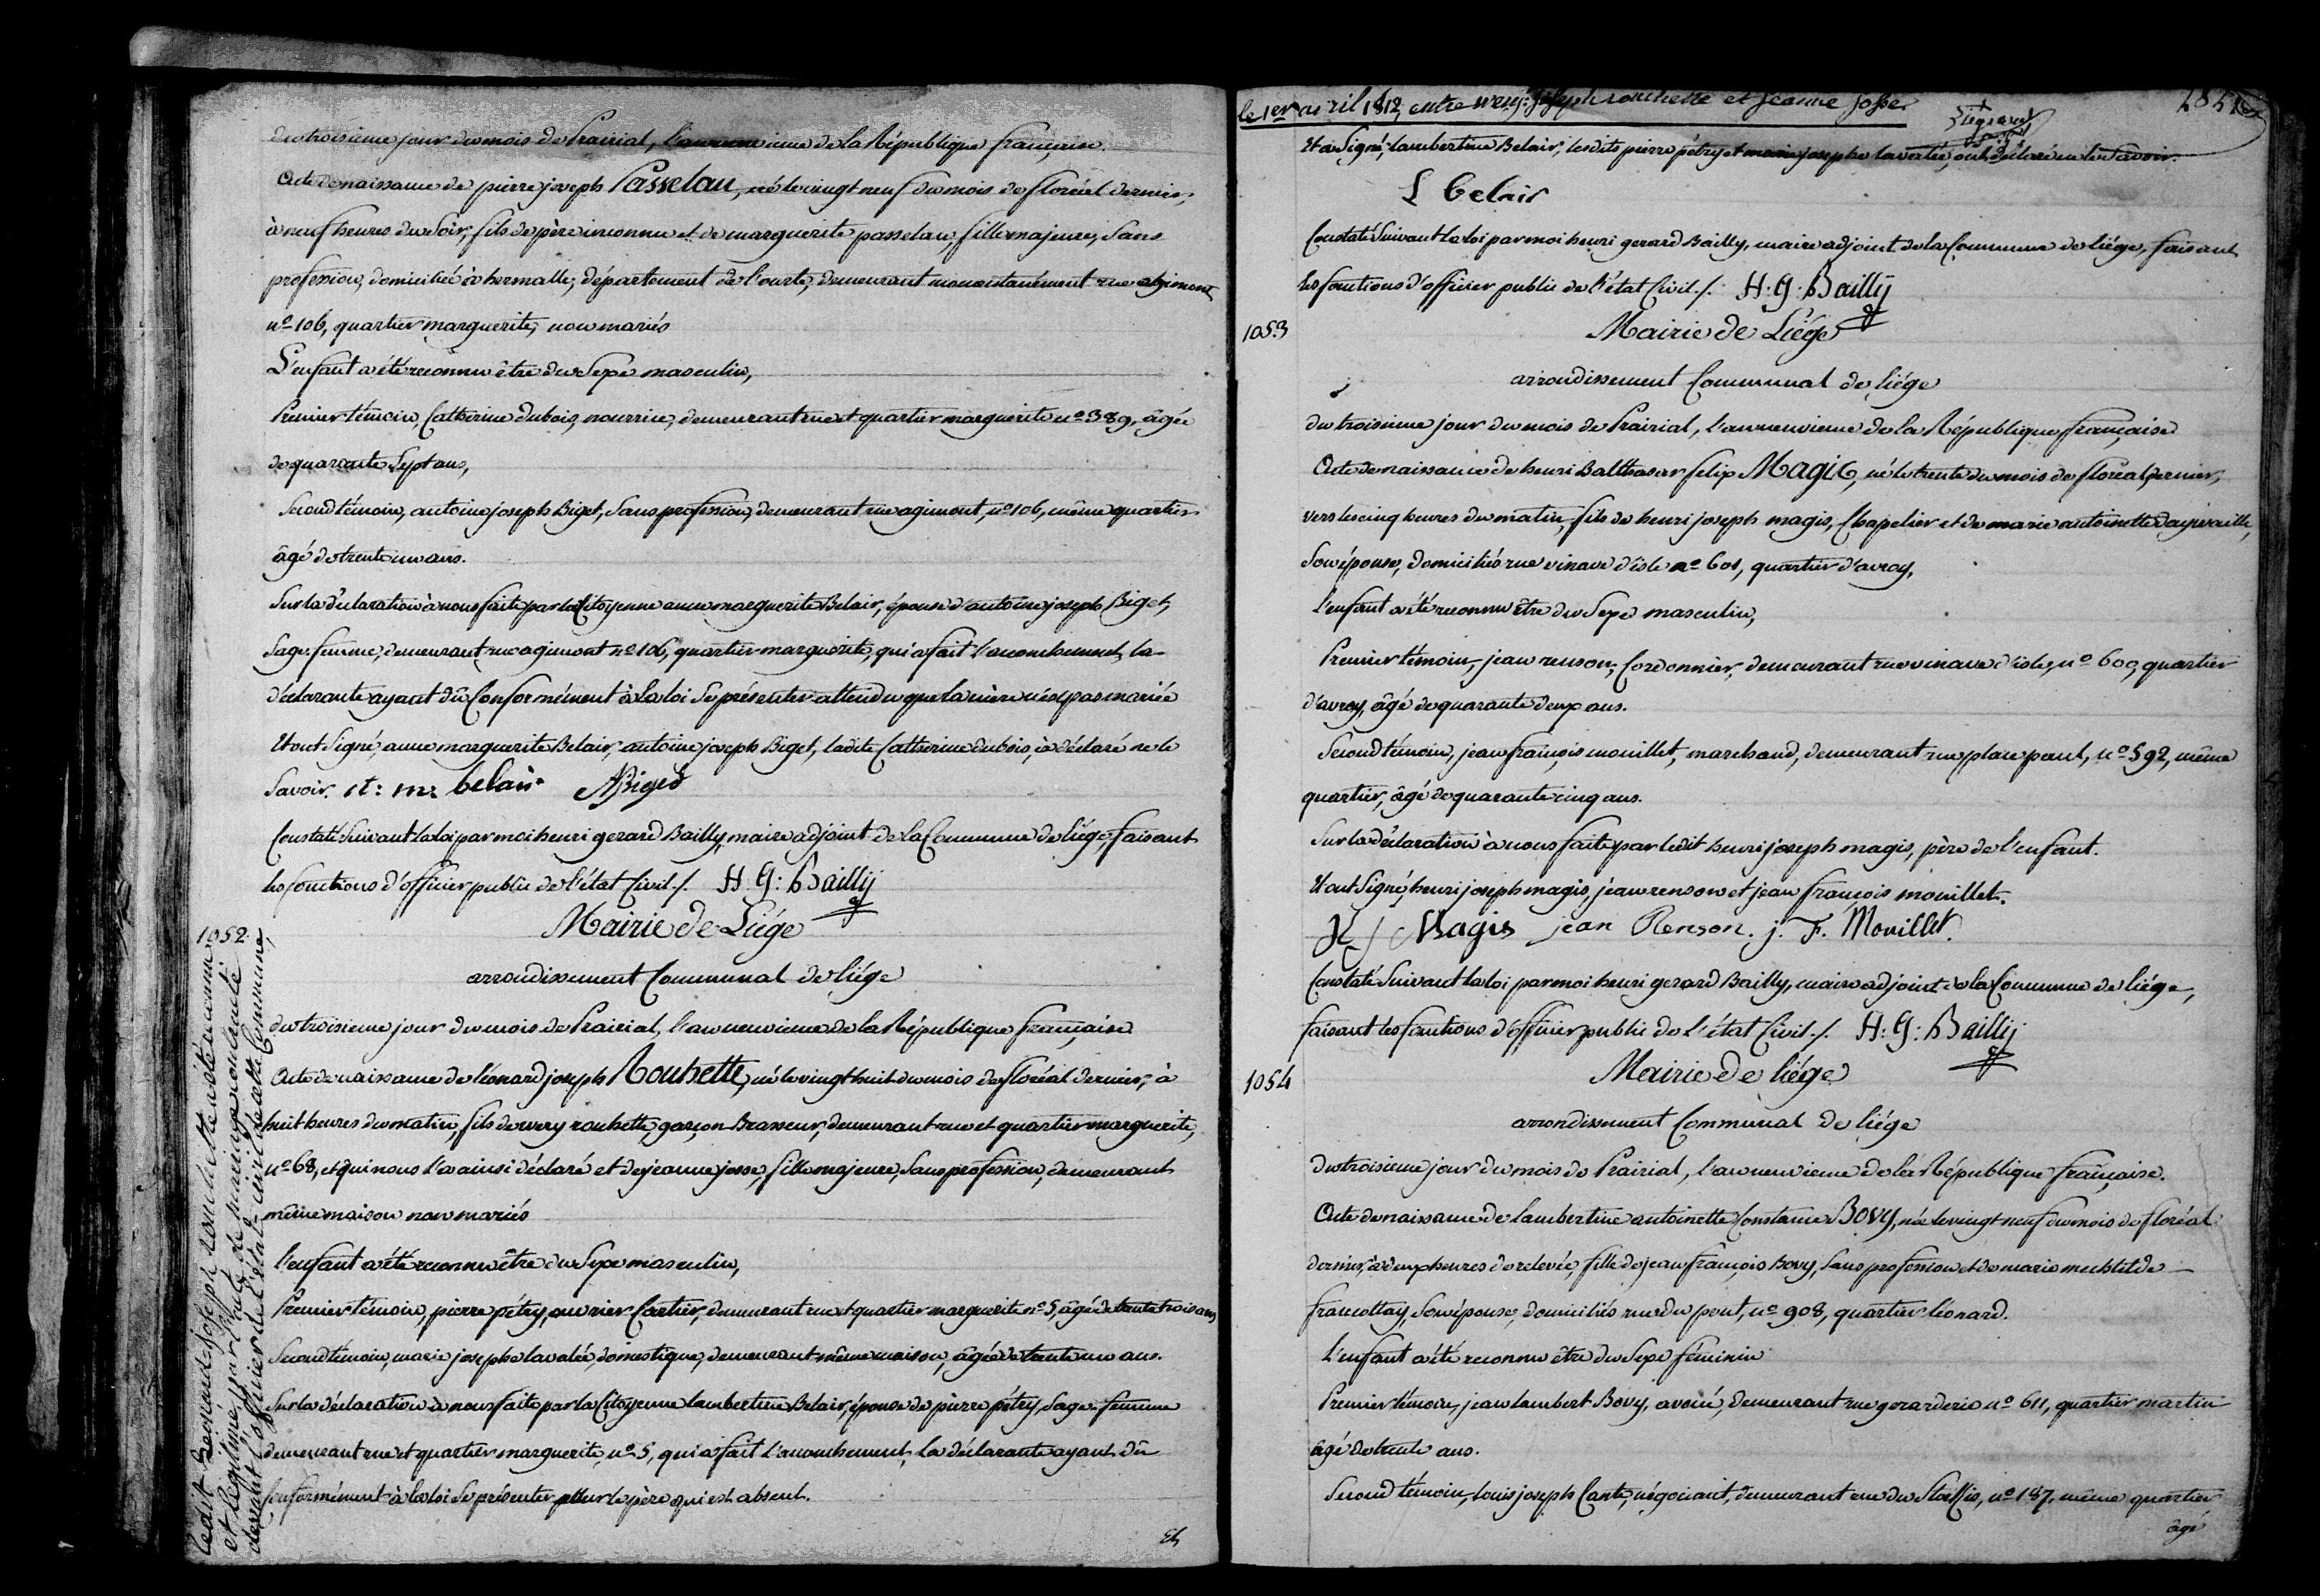 du troisieme jour du mois de Prairial, l'an neuvieme de la République française.
Acte de naissance de pierre joseph Passelau, né le vingt neuf du mois de floréal dernier,
à neuf heures du Soir, fils de père inconnu et de marguerite passelau, fille majeure, Sans
profession, domiciliée à hermalle, département de l'ourte, demeurant momentanément rue agimont
nº 106, quartier marguerite, non mariés
L'enfant a été reconnu être du Sexe masculin,
Premier témoin, Catherine dubois, nourrice, demeurant rue et quartier marguerite nº 389, âgée
de quarante Sept ans,
Second témoin, antoine joseph Biget, Sans profession, demeurant rue agimont, nº 106, même quartier
âgé de trente un ans.
Sur la déclaration à nous faite par la Citoyenne anne marguerite Belair, épouse d'antoine joseph Biget,
Sage femme, demeurant rue agimont nº 106, quartier marguerite, qui a fait l'accouchement, la
déclarante ayant dû Conformément à la loi Se présenter attendu que la mère n'est pas mariée
Et ont Signé, anne marguerite Belair, antoine joseph Biget, ladite Catherine dubois, a déclaré ne le
Savoir. A: m: belair AJBiget
Constaté Suivant la loi par moi henri gerard Bailly, maire adjoint de la Commune de liége, faisant
les fonctions d'officier public de l'état Civil./. H: G: Bailly
1052. Mairie de Liége
arrondissement Communal de liége
du troisieme jour du mois de Prairial, l'an neuvieme de la République française
Acte de naissance de léonard joseph Rouhette, né le vingt huit du mois de floréal dernier, à
huit heures du matin, fils de wery rouhette, garçon Brasseur, demeurant rue et quartier marguerite,
nº 68, et qui nous l'a ainsi déclaré et de jeanne josse, fille majeure, Sans profession, demeurant
même maison non mariés
l'enfant a été reconnu être du Sexe masculin,
Premier témoin, pierre pétry, ouvrier Cartier, demeurant rue et quartier marguerite nº 5, âgé de trente trois ans
Second témoin, marie josephe lavalée, domestique, demeurant même maison, âgée de trente un ans.
Sur la déclaration à nous faite par la Citoyenne lambertine Belair, épouse de pierre pétry, Sage femme
demeurant rue et quartier marguerite, nº 5, qui a fait l'accouchement, la déclarante ayant dû
Conformément à la loi Se présenter pour le père qui est absent.
Et
ledit Léonard-joseph rouhette a été reconnu
et légitimé, par l'acte de mariage contracté
devant l'officier de l'état-civil de cette Commune,
le 1er avril 1812, entre wery joseph rouhette et jeanne josse.
Et a Signé, lambertine Belair, lesdits pierre pétry et marie josephe lavalée, ont déclaré ne le Savoir.
L belair
Constaté Suivant la loi par moi henri gerard Bailly, maire adjoint de la Commune de liége, faisant
les fonctions d'officier public de l'état Civil./. H: G: Bailly
1053 Mairie de Liége
arrondissement Communal de liége
du troisieme jour du mois de Prairial, l'an neuvieme de la République française
Acte de naissance de henri Balthasar felix Magis, né le trente du mois de floréal dernier,
vers les cinq heures du matin, fils de henri joseph magis, Chapelier et de marie antoinette dayivaille,
Son épouse, domiciliés rue vinave d'isle nº 601, quartier d'avroy,
l'enfant a été reconnu être du Sexe masculin,
Premier témoin, jean renson, Cordonnier, demeurant rue vinave d'isle, nº 600, quartier
d'avroy, âgé de quarante deux ans.
Second témoin, jean françois mouillet, marchand, demeurant rue place paul, nº 592, même
quartier, âgé de quarante cinq ans.
Sur la déclaration à nous faite par ledit henri joseph magis, père de l'enfant.
Et ont Signé, henri joseph magis, jean renson et jean françois mouillet.
H J Magis jean Renson. j. F. Mouillet.
Constaté Suivant la loi par moi henri gerard Bailly, maire adjoint de la Commune de liége,
faisant les fonctions d'officier public de l'état Civil./. H: G: Bailly
1054 Mairie de liége
arrondissement Communal de liége
du troisieme jour du mois de Prairial, l'an neuvieme de la République française.
Acte de naissance de lambertine antoinette Constance Bovy, née le vingt neuf du mois de floréal
dernier, à deux heures de relevée, fille de jean françois Bovy, Sans profession et de marie mechtilde
francottay, Son épouse, domiciliés rue du pont, nº 908, quartier léonard.
L'enfant a été reconnu être du Sexe féminin
Premier témoin, jean lambert Bovy, avoué, demeurant rue gerarderie nº 611, quartier martin
âgé de trente ans.
Second témoin, louis joseph Cante, négociant, demeurant rue du Stalfis, nº 187, même quartier
âgé